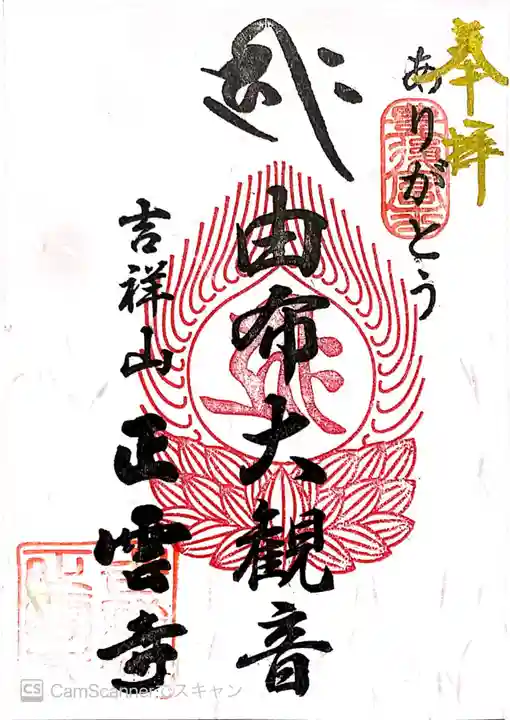 奉拝
ありがとう
由布大観音
吉祥山 正雲寺
CS CamScanner でスキャン